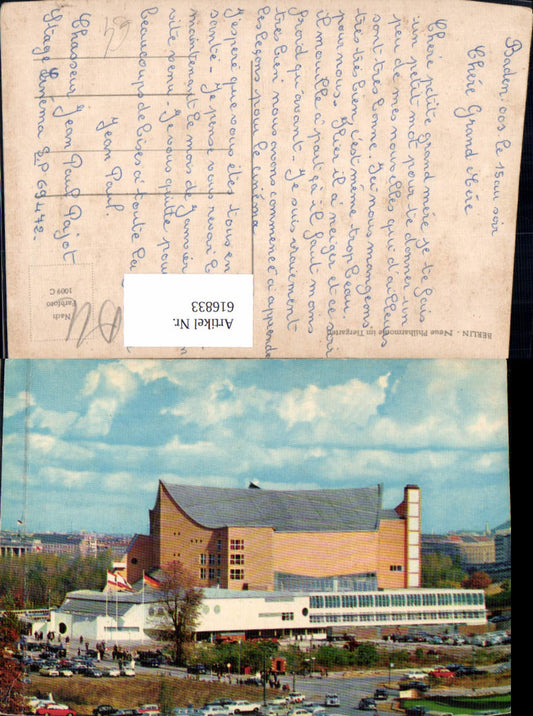 Baden oos le 15 au soir
Chère Grand Mère
Chère petite Grand mère je te fais
un petit mot pour te donner un
peu de mes nouvelles qui d'ailleurs
sont très bonne. Ici nous mangeons
très très bien, c'est même trop beau
pour nous. Hier il a neiger et ce soir
il mouille à part ça il fait moins
froid qu'avant. Je suis vraiment
très bien nous avons commencer à apprendre
les leçons pour le cinéma
J'espère que vous êtes tous en
santé. Je pense vous revoir
maintenant le mois de Janvier
vite venu. Je vous quitte pour
beaucoups de bises à toute la
Jean Paul.
Chasseur Jean Paul Pajot
Stage Cinema S.P 69.472.
BERLIN · Neue Philharmonie im Tiergarten
Nach
Farbfoto
1009 C
Artikel Nr.
616833